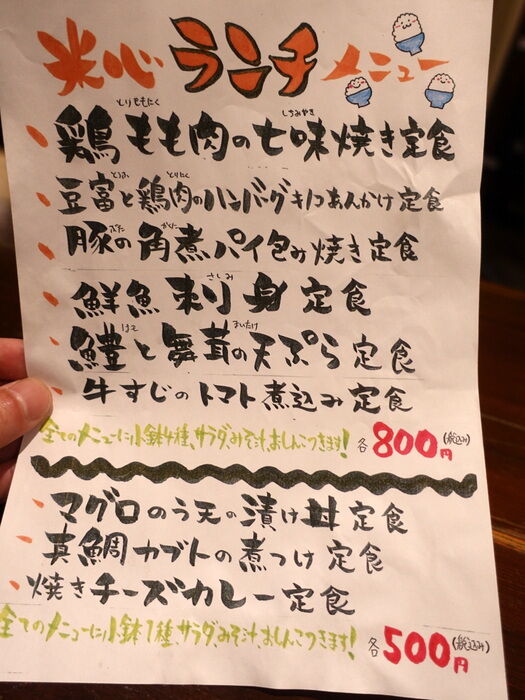 米心 ランチ メニュー
とりももにく しちみやき
鶏もも肉の七味焼き定食
とうふ とりにく
豆富と鶏肉のハンバーグキノコあんかけ定食
ぶた かくに
豚の角煮パイ包み焼き定食
さしみ
鮮魚刺り身定食
はも まいたけ
鱧と舞茸の天ぷら定食
牛すじのトマト煮込み定食
全てのメニューに小鉢4種、サラダ、みそ汁、おしんこつきます! 各800円(税込み)
マグロのう天の漬け丼定食
真鯛カブトの煮つけ定食
焼きチーズカレー定食
全てのメニューに小鉢1種、サラダ、みそ汁、おしんこつきます! 各500円(税込み)